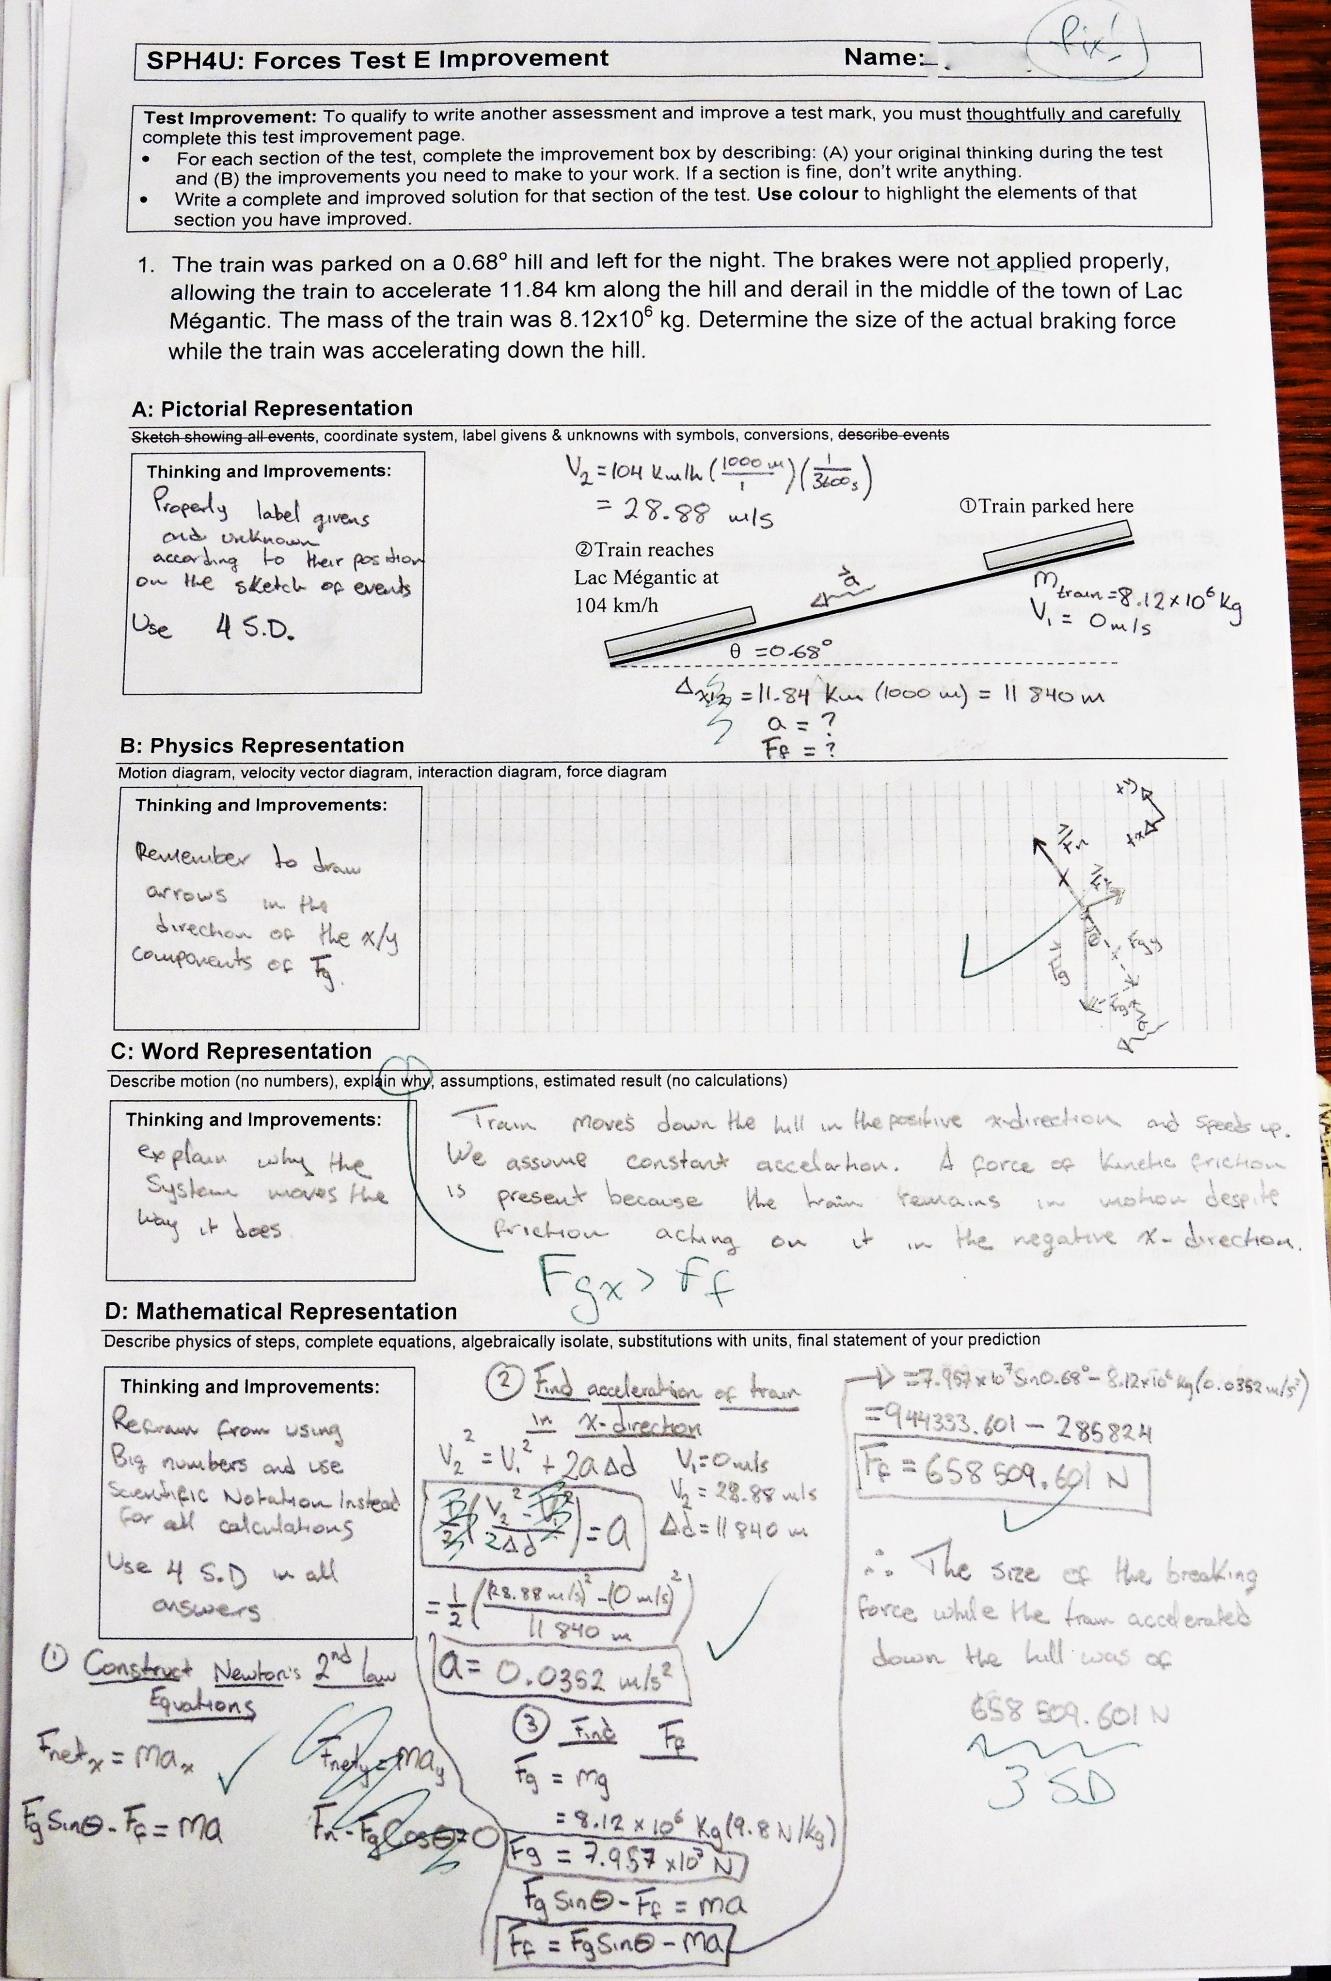 fix!
SPH4U: Forces Test E Improvement Name:
Test Improvement: To qualify to write another assessment and improve a test mark, you must thoughtfully and carefully
complete this test improvement page.
• For each section of the test, complete the improvement box by describing: (A) your original thinking during the test
and (B) the improvements you need to make to your work. If a section is fine, don't write anything.
• Write a complete and improved solution for that section of the test. Use colour to highlight the elements of that
section you have improved.
1. The train was parked on a 0.68° hill and left for the night. The brakes were not applied properly,
allowing the train to accelerate 11.84 km along the hill and derail in the middle of the town of Lac
Mégantic. The mass of the train was 8.12x10⁶ kg. Determine the size of the actual braking force
while the train was accelerating down the hill.
A: Pictorial Representation
Sketch showing all events, coordinate system, label givens & unknowns with symbols, conversions, describe events
Thinking and Improvements:
Properly label givens
and unknown
according to their position
on the sketch of events
Use 4 S.D.
V₂ = 104 Km/h (1000 m/1)(1/3600s)
= 28.88 m/s
①Train parked here
②Train reaches
Lac Mégantic at
104 km/h
a
m train = 8.12 x 10⁶ kg
V₁ = 0 m/s
θ = 0.68°
= 11.84 Km (1000 m) = 11 840 m
a = ?
Ff = ?
B: Physics Representation
Motion diagram, velocity vector diagram, interaction diagram, force diagram
Thinking and Improvements:
Remember to draw
arrows in the
direction of the x/y
components of Fg.
+y
+x
Fn
Ff
θ
Fgy
Fg
Fgx
a
C: Word Representation
Describe motion (no numbers), explain why, assumptions, estimated result (no calculations)
Thinking and Improvements:
explain why the
System moves the
way it does
Train moves down the hill in the positive x-direction and speeds up.
We assume constant accelartion. A force of Kinetic friction
is present because the train remains in motion despite
friction acting on it in the negative x-direction.
Fgx > Ff
D: Mathematical Representation
Describe physics of steps, complete equations, algebraically isolate, substitutions with units, final statement of your prediction
Thinking and Improvements:
Refrain from using
Big numbers and use
Scientific Notation Instead
for all calculations
Use 4 S.D in all
answers
① Construct Newton's 2nd law
Equations
Fnetx = max
Fnety = may
FgSinθ - Ff = ma
Fn - FgCosθ = 0
② Find acceleration of train
in x-direction
V₂² = V₁² + 2aΔd
V₁ = 0 m/s
V₂ = 28.88 m/s
Δd = 11 840 m
(V₂² - V₁² / 2Δd) = a
= 1/2 ((28.88 m/s)² - (0 m/s)² / 11 840 m)
a = 0.0352 m/s²
③ Find Ff
Fg = mg
= 8.12 x 10⁶ Kg (9.8 N/kg)
Fg = 7.957 x10⁷ N
FgSinθ - Ff = ma
Ff = FgSinθ - ma
= 7.957x10⁷ Sin0.68° - 8.12x10⁶ kg (0.0352 m/s²)
= 944333.601 - 285824
Ff = 658 509.601 N
∴ The size of the breaking
force while the train accelerated
down the hill was of
658 509.601 N
3 SD